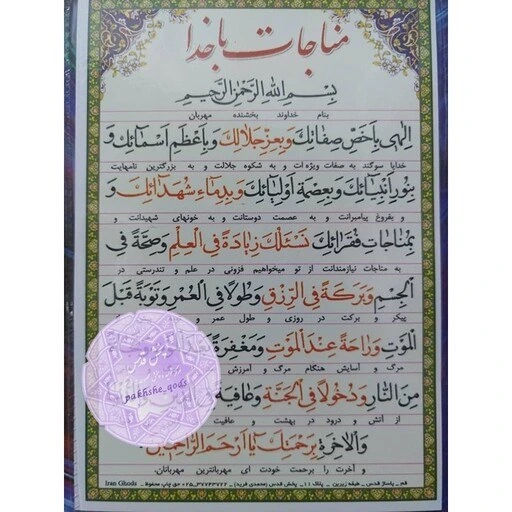 مناجات با خدا
بِسْمِ اللهِ الرَّحْمٰنِ الرَّحِيمِ
بنام خداوند بخشنده مهربان
اِلٰهي بِاَخَصِّ صِفاتِكَ وَبِعِزِّ جَلالِكَ وَبِاَعْظَمِ اَسْمائِكَ وَ
خدایا سوگند به صفات ویژه ات و به شکوه جلالت و به بزرگترین نامهایت
بِنُورِ اَنْبِيائِكَ وَبِعِصْمَةِ اَوْلِيائِكَ وَبِدِماءِ شُهَدائِكَ وَ
و بفروغ پیامبرانت و به عصمت دوستانت و به خونهای شهیدانت و
بِمُناجاتِ فُقَرائِكَ نَسْئَلُكَ زِيادَةً فِي الْعِلْمِ وَصِحَّةً فِي
به مناجات نیازمندانت از تو میخواهیم فزونی در علم و تندرستی در
الْجِسْمِ وَبَرَكَةً فِي الرِّزْقِ وَطُولاً فِي الْعُمْرِ وَتَوْبَةً قَبْلَ
پیکر و برکت در روزی و طول عمر و
الْمَوْتِ وَراحَةً عِنْدَ الْمَوْتِ وَمَغْفِرَةً
مرگ و آسایش هنگام مرگ و آمرزش
مِنَ النّارِ وَدُخُولاً فِي الْجَنَّةِ وَعافِيَةً
از آتش و درود در بهشت و عافیت
وَالْاٰخِرَةِ بِرَحْمَتِكَ يا اَرْحَمَ الرّاحِمينَ
و آخرت را برحمت خودت ای مهربانترین مهربانان.
قم _ پاساژ قدس _ طبقه زیرین _ پلاک ١١_ پخش قدس (محمدی فرید) _ ٣٧٧٤٣٧٢٢-٠٢٥ حق چاپ محفوظ _ Iran Ghods
pakhshe_qods